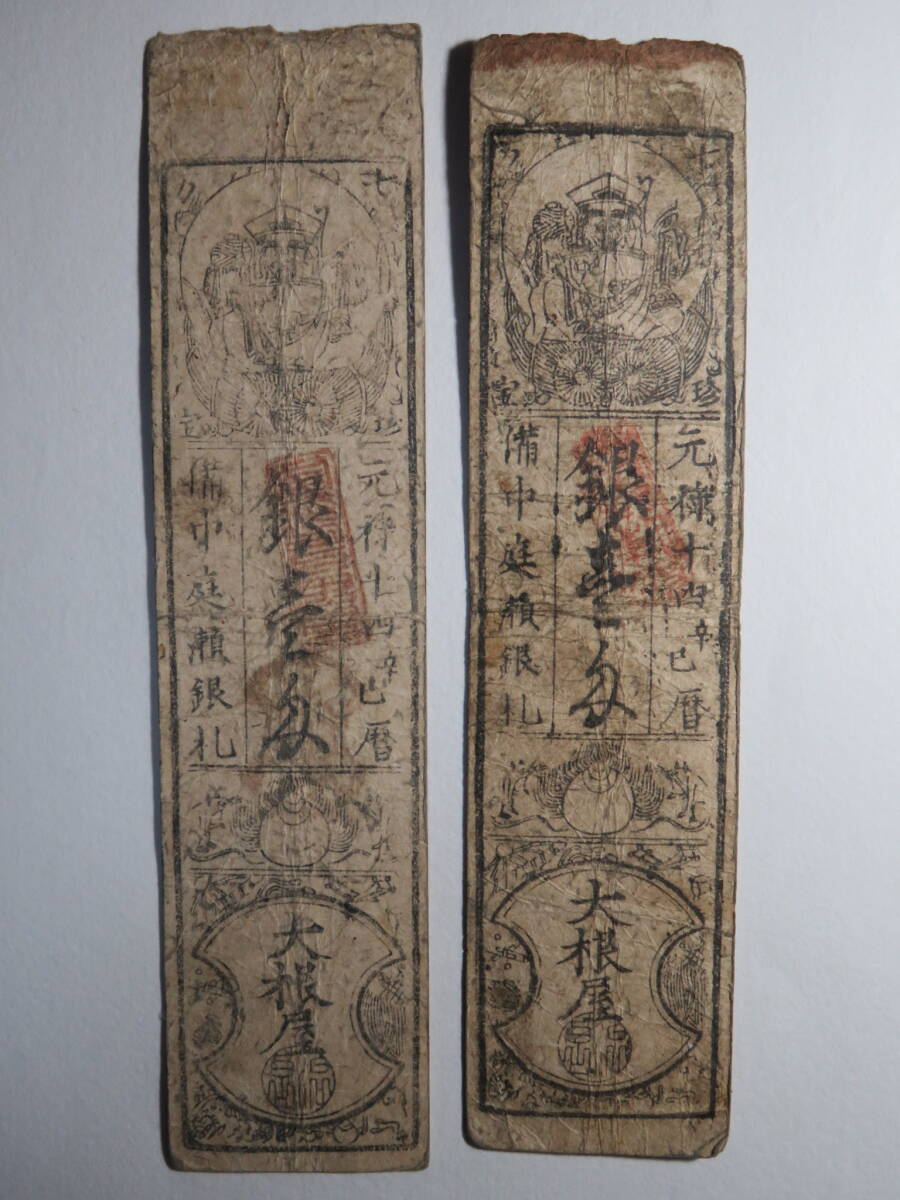 七
珍
万
宝
元禄十四辛巳暦
銀壱匁
備中庭瀬銀札
大根屋
七
珍
万
宝
元禄十四辛巳暦
銀壱匁
備中庭瀬銀札
大根屋